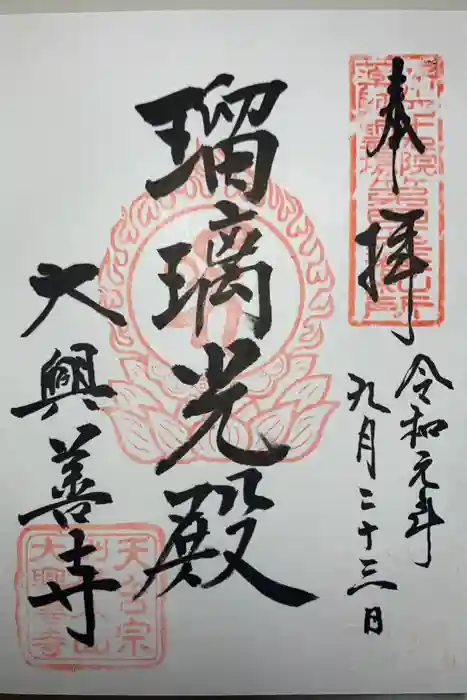 奉拝
令和元年
九月二十三日
瑠璃光殿
大興善寺
天台宗
大興善寺